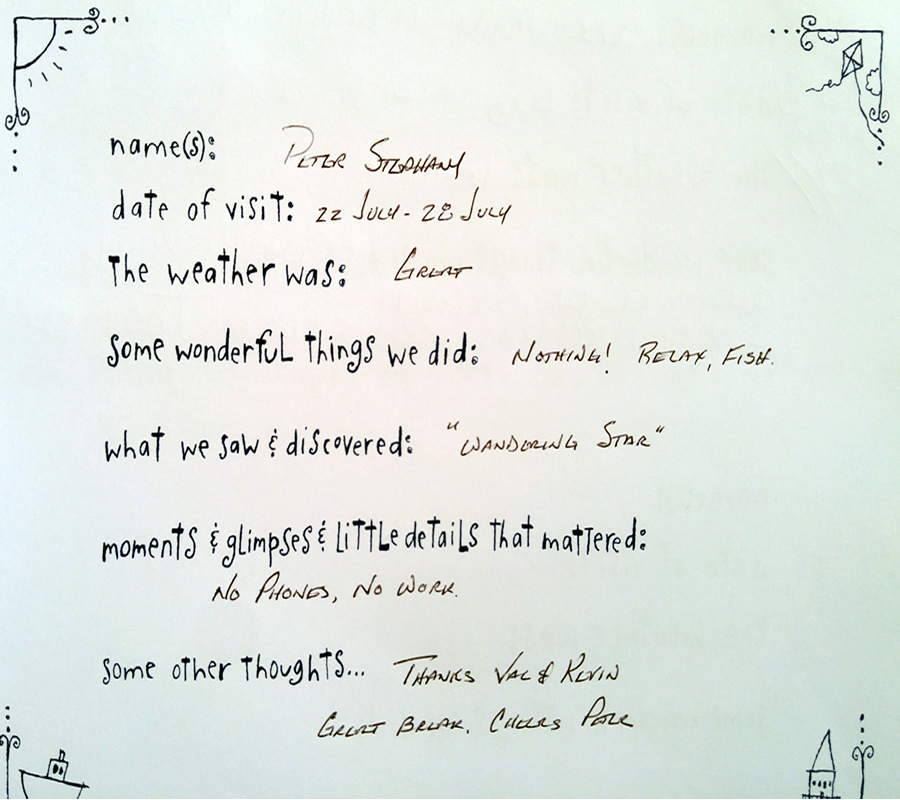 name(s): PETER STEPHANY
date of visit: 22 JULY - 28 JULY
the weather was: GREAT
some wonderful things we did: NOTHING! RELAX, FISH.
what we saw & discovered: "WANDERING STAR"
moments & glimpses & little details that mattered:
NO PHONES, NO WORK.
some other thoughts... THANKS VAL & KEVIN
GREAT BREAK. CHEERS